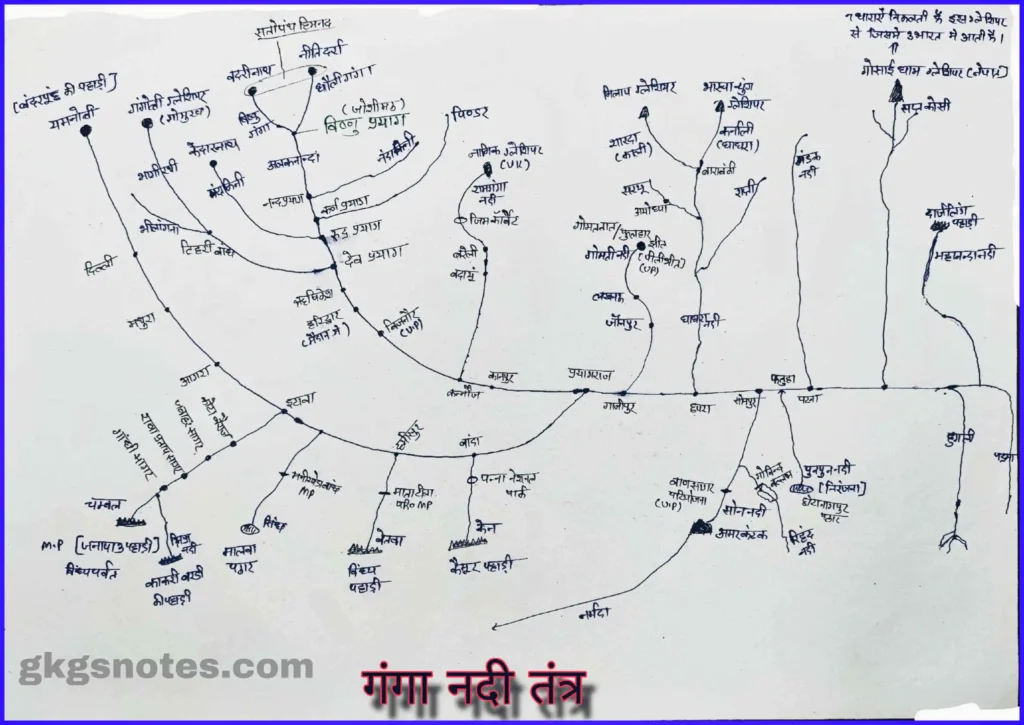 सतोपंथ हिमनद
7 धाराएँ निकलती हैं इस ग्लेशियर
से जिसमे 3 भारत मे आती हैं।
बद्रीनाथ
नीतिदर्रा
धौली गंगा
विष्णु
गंगा
(जोशीमठ)
विष्णु प्रयाग
अलकनन्दा
[बंदरपूंछ की पहाड़ी]
यमनोत्री
गंगोत्री ग्लेशियर
(गोमुख)
भागीरथी
केदारनाथ
मंदाकिनी
भीलंगना
टिहरी बांध
पिण्डर
नंदाकिनी
नन्दप्रयाग
कर्ण प्रयाग
रुद्र प्रयाग
देव प्रयाग
ऋषिकेश
हरिद्वार
(मैदान मे)
बिजनौर
(UP)
नामिक ग्लेशियर
(UK)
रामगंगा
नदी
जिम कॉर्बेट
बरेली
बदायूं
मिलाप ग्लेशियर
शारदा
(काली)
सरयू
अयोध्या
गोमतताल/
फुलहार
झील
[पीलीभीत]
(UP)
गोमती नदी
लखनऊ
जौनपुर
ग्लेशियर
कर्नाली
(घाघरा)
बाराबंकी
राप्ती
घाघरा
नदी
गंडक
नदी
गोसाईं धाम ग्लेशियर [नेपाल]
सप्त कोसी
दार्जिलिंग
पहाड़ी
महानन्दा नदी
दिल्ली
मथुरा
आगरा
इटावा
हमीरपुर
बांदा
कन्नौज
कानपुर
प्रयागराज
गाजीपुर
छपरा
सोनपुर
फतुहा
पटना
हुगली
पदमा
कोटा बैराज
जवाहर सागर
राणा प्रताप सागर
गांधी सागर
चम्बल
M.P [जनापाव पहाड़ी]
विंध्यपर्वत
नदी
काकरी बरडी
की पहाड़ी
MP
सिंध
मालवा
पठार
माताटीला
परि० MP
बेतवा
विंध्य
पहाड़ी
पन्ना नेशनल
पार्क
केन
कैमूर पहाड़ी
बाणसागर
परियोजना
(UP)
सोन नदी
अमरकंटक
नर्मदा
गोविन्द
बल्लभ
रिहंद
नदी
पुनपुन नदी
[निरंजना]
छोटानागपुर
पठार
gkgsnotes.com
गंगा नदी तंत्र